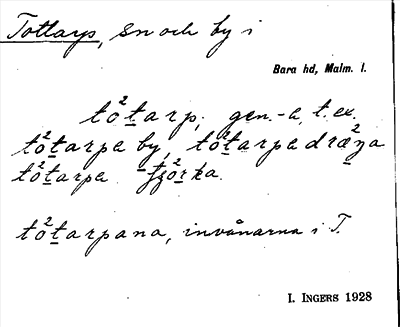 Tottarp, sn och by i
Bara hd, Malm. l.
tò²tarp; gen. -a, t. ex.
tò²tarpa by, tò²tarpadræ²ŋa
tò²tarpa
tò²tarpana, invånarna i T.
I. INGERS 1928